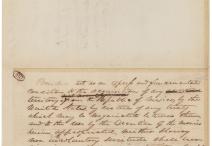 Provided, that as an express and fundamental
condition to the acquisition of any
territory from the Republic of Mexico by the
United States, by virtue of any treaty
which may be negotiated between them,
and to the use by the Executive of the moneys
herein appropriated, neither slavery
nor involuntary servitude shall ever